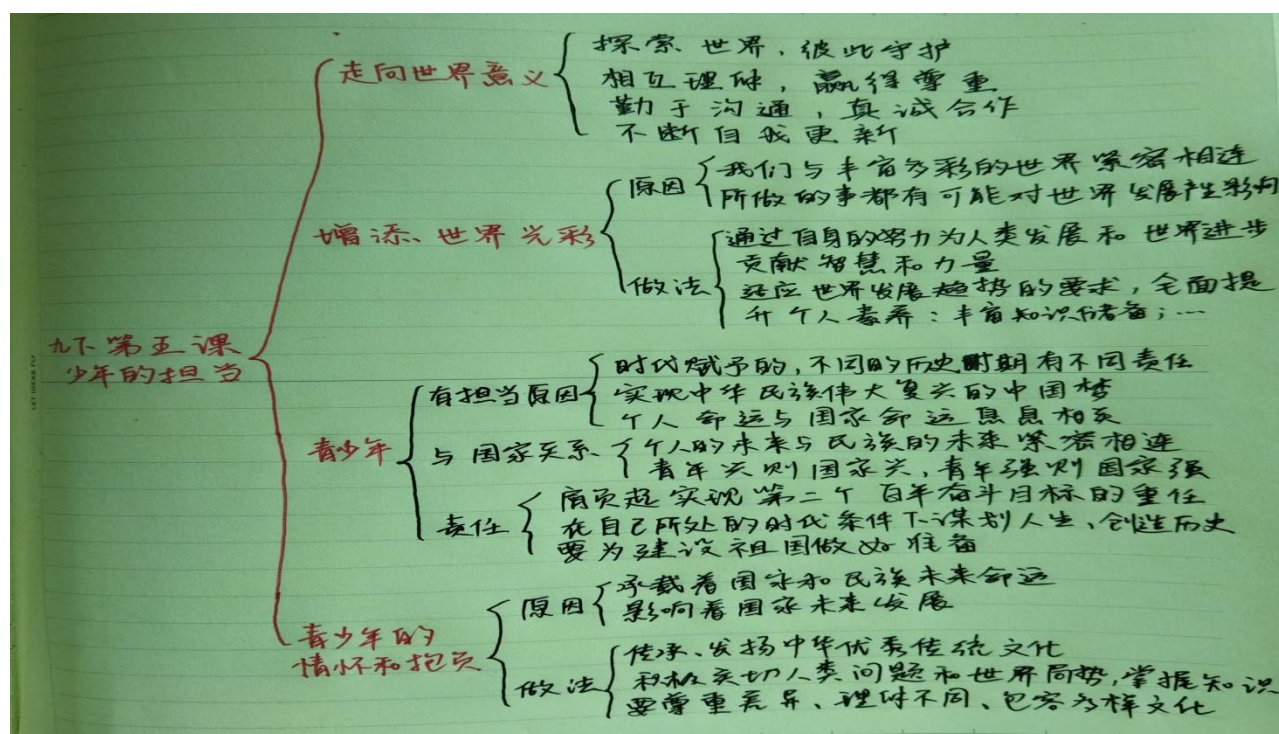 九下第五课
少年的担当
走向世界意义
探索世界，彼此守护
相互理解，赢得尊重
勤于沟通，真诚合作
不断自我更新
增添世界光彩
原因
我们与丰富多彩的世界紧密相连
所做的事都有可能对世界发展产生影响
做法
通过自身的努力为人类发展和世界进步
贡献智慧和力量
适应世界发展趋势的要求，全面提
升个人素养：丰富知识储备；…
青少年
有担当原因
时代赋予的，不同的历史时期有不同责任
实现中华民族伟大复兴的中国梦
个人命运与国家命运息息相关
与国家关系
个人的未来与民族的未来紧密相连
青年兴则国家兴，青年强则国家强
责任
肩负起实现第二个百年奋斗目标的重任
在自己所处的时代条件下谋划人生、创造历史
要为建设祖国做好准备
青少年的
情怀和抱负
原因
承载着国家和民族未来命运
影响着国家未来发展
做法
传承、发扬中华优秀传统文化
积极关切人类问题和世界局势，掌握知识
要尊重差异、理解不同、包容多样文化